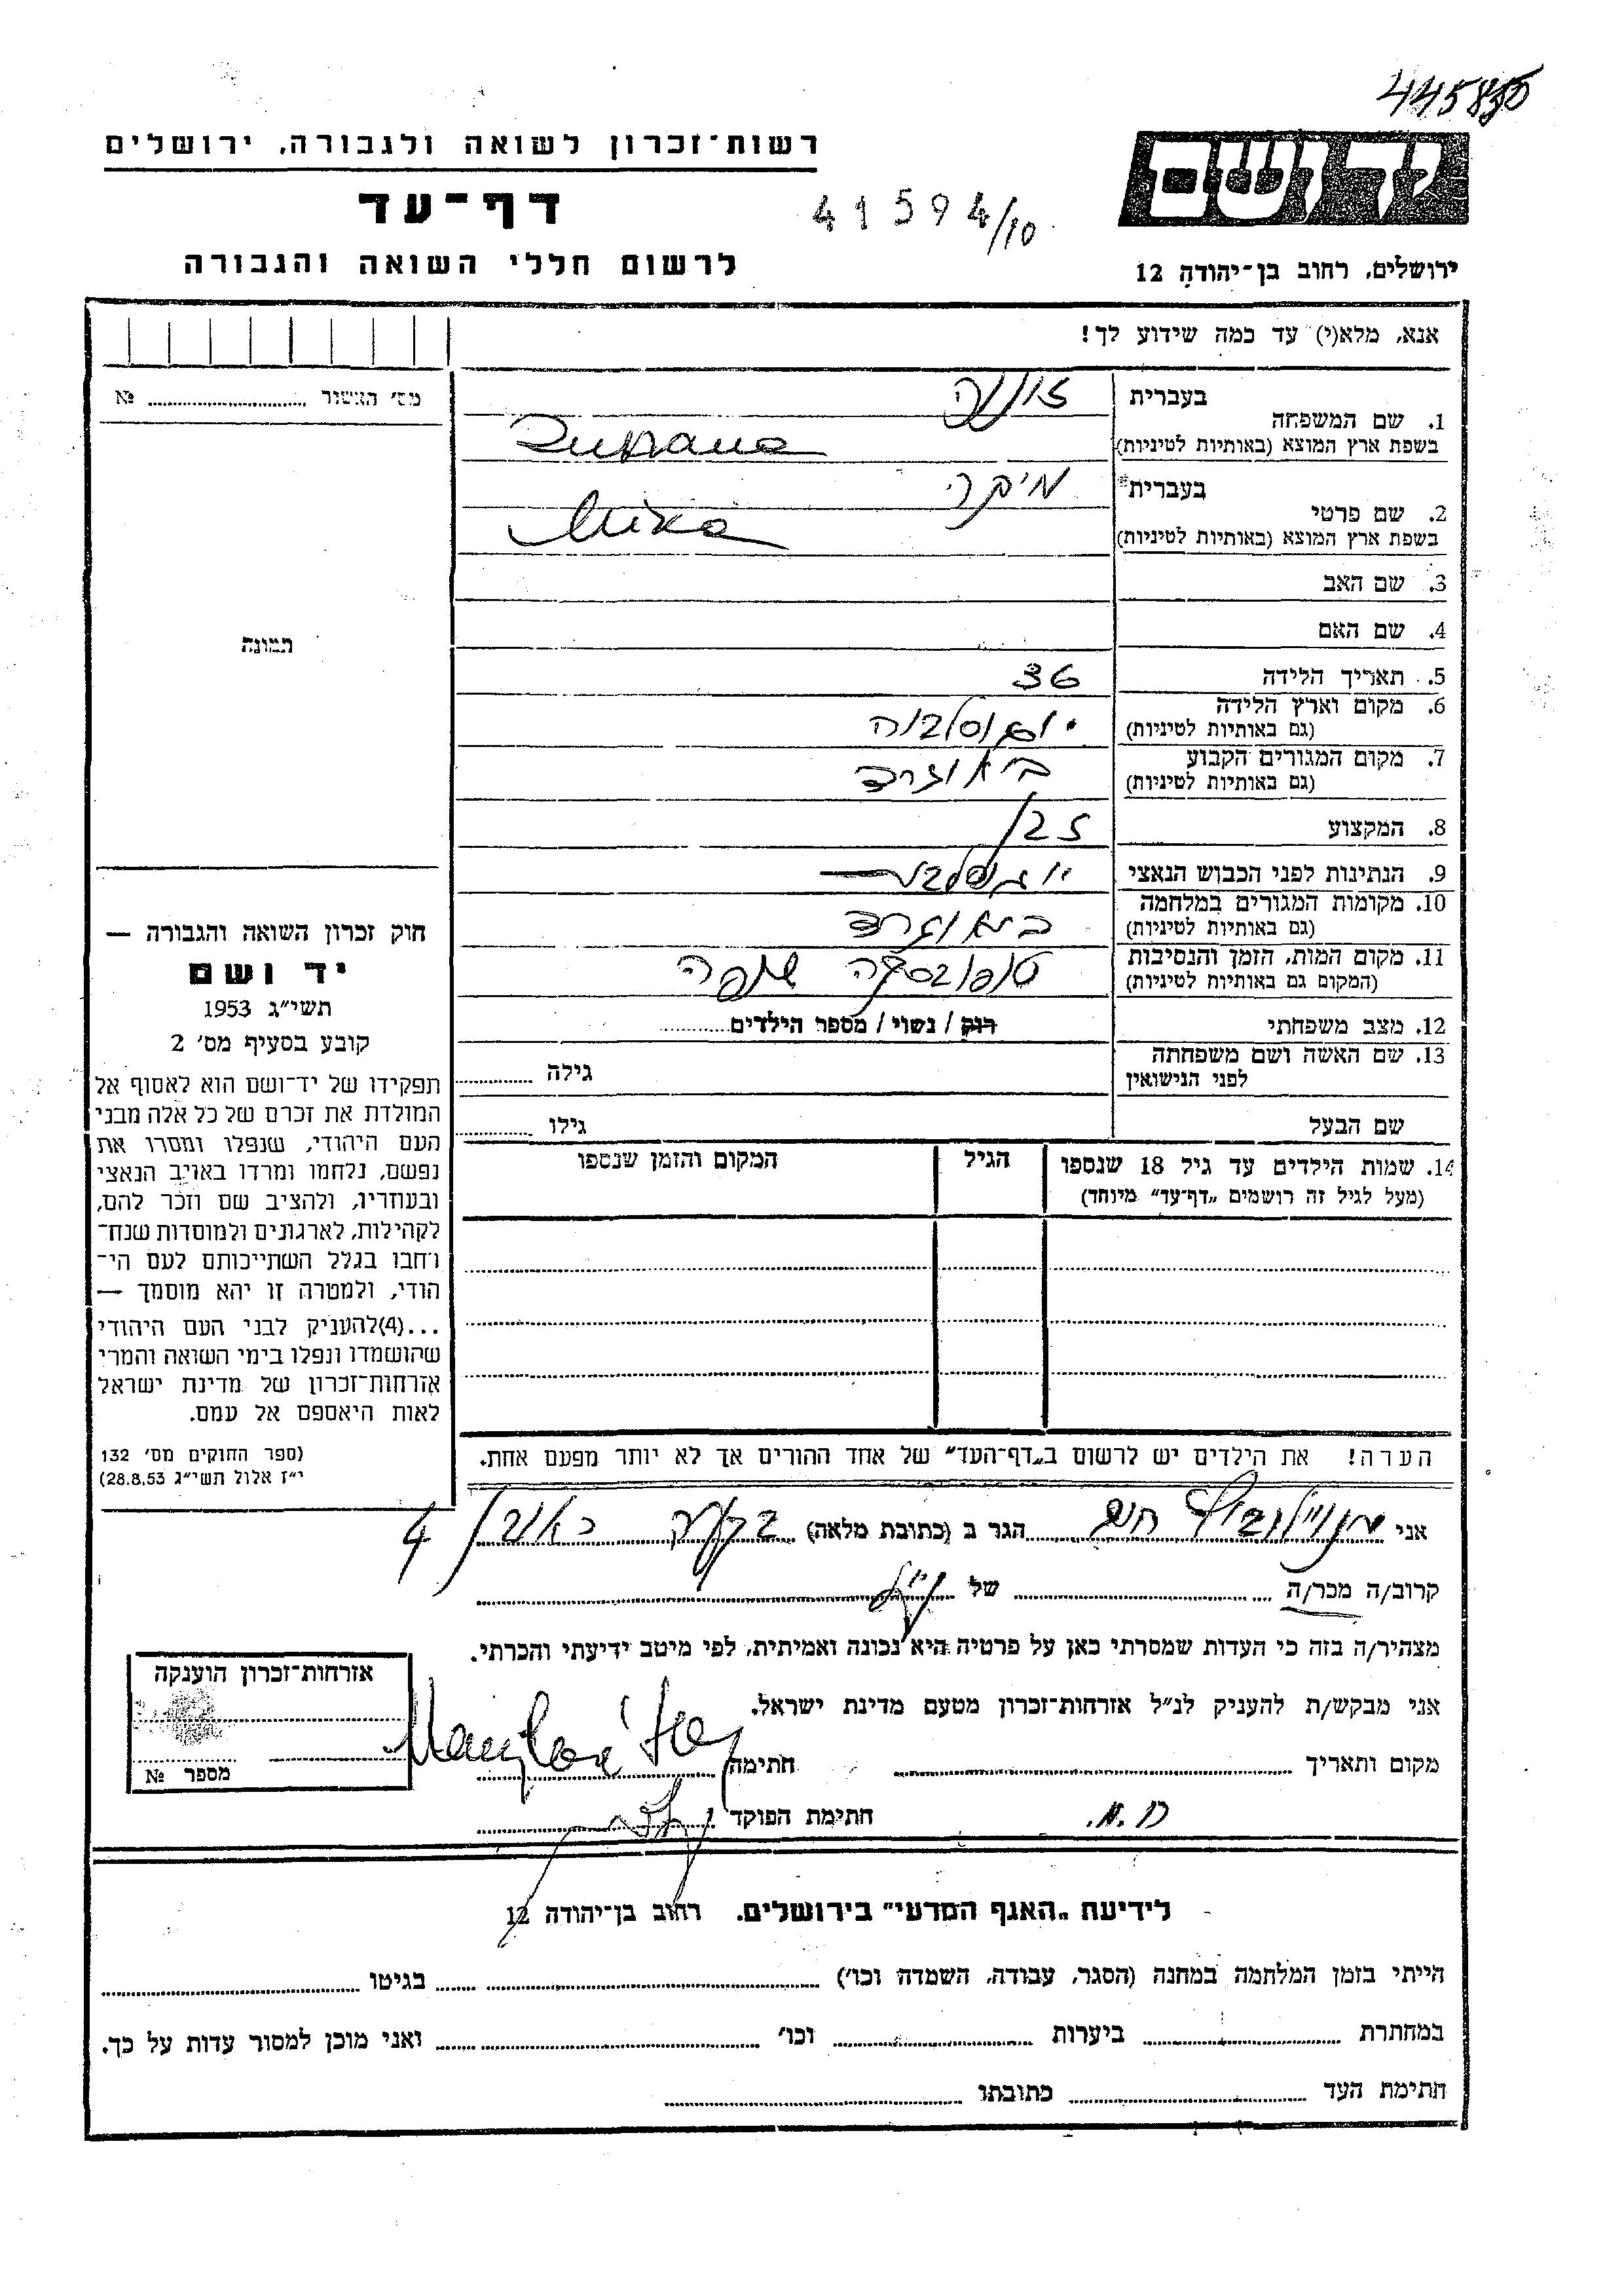 רשות־זכרון לשואה ולגבורה, ירושלים
דף־עד
לרשום חללי השואה והגבורה
41594/10
יד ושם
ירושלים, רחוב בן־יהודה 12
אנא, מלא(י) עד כמה שידוע לך!
מס׳ האשור ........ №
תמונה
1. שם המשפחה
בעברית
בשפת ארץ המוצא (באותיות לטיניות)
2. שם פרטי
בעברית
מיקה
בשפת ארץ המוצא (באותיות לטיניות)
Mika
3. שם האב
4. שם האם
5. תאריך הלידה
36
6. מקום וארץ הלידה
(גם באותיות לטיניות)
יוגוסלביה
7. מקום המגורים הקבוע
(גם באותיות לטיניות)
ביאוגרד
8. המקצוע
9. הנתינות לפני הכבוש הנאצי
10. מקומות המגורים במלחמה
(גם באותיות לטיניות)
ביאוגרד
11. מקום המות, הזמן והנסיבות
(המקום גם באותיות לטיניות)
12. מצב משפחתי
רוק / נשוי / מספר הילדים
13. שם האשה ושם משפחתה
לפני הנישואין
גילה
שם הבעל
גילו
14. שמות הילדים עד גיל 18 שנספו
(מעל לגיל זה רושמים „דף־עד” מיוחד)
הגיל
המקום והזמן שנספו
חוק זכרון השואה והגבורה —
יד ושם
תשי״ג 1953
קובע בסעיף מס׳ 2
תפקידו של יד־ושם הוא לאסוף אל
המולדת את זכרם של כל אלה מבני
העם היהודי, שנפלו ומסרו את
נפשם, נלחמו ומרדו באויב הנאצי
ובעוזריו, ולהציב שם וזכר להם,
לקהילות, לארגונים ולמוסדות שנח־
רחבו בגלל השתייכותם לעם הי־
הודי, ולמטרה זו יהא מוסמך —
...(4)להעניק לבני העם היהודי
שהושמדו ונפלו בימי השואה והמרי
אזרחות־זכרון של מדינת ישראל
לאות היאספם אל עמם.
(ספר החוקים מס׳ 132
י״ז אלול תשי״ג 28.8.53)
הערה! את הילדים יש לרשום ב„דף־העד” של אחד ההורים אך לא יותר מפעם אחת.
אני ........ הגר ב (כתובת מלאה) ........ 4
קרוב/ה מכר/ה ........ של ........
מצהיר/ה בזה כי העדות שמסרתי כאן על פרטיה היא נכונה ואמיתית, לפי מיטב ידיעתי והכרתי.
אני מבקש/ת להעניק לנ״ל אזרחות־זכרון מטעם מדינת ישראל.
מקום ותאריך ........ חתימה ........
חתימת הפוקד ........
אזרחות־זכרון הוענקה
מספר №
לידיעת „האגף המדעי” בירושלים, רחוב בן־יהודה 12
הייתי בזמן המלחמה במחנה (הסגר, עבודה, השמדה וכו׳) ........ בגיטו ........
במחתרת ........ ביערות ........ וכו׳ ........ ואני מוכן למסור עדות על כך.
חתימת העד ........ כתובתו ........